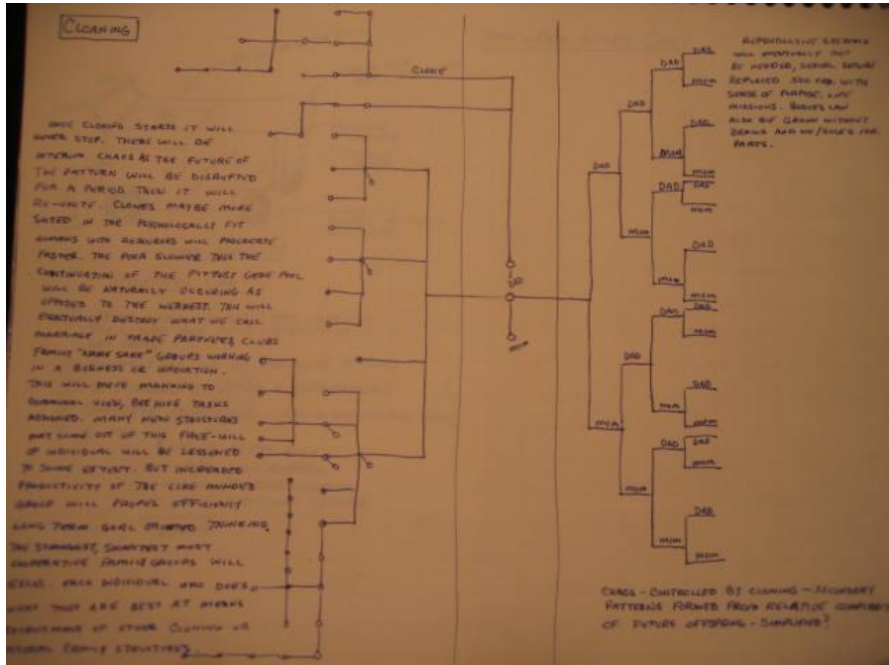 CLONING
ONCE CLONING STARTS IT WILL
NEVER STOP. THERE WILL BE
INTERIM CHAOS AS THE FUTURE OF
THE PATTERN WILL BE DISRUPTED
FOR A PERIOD THEN IT WILL
RE-UNITE. CLONES MAYBE MORE
SUITED IN THE PSYCHOLOGICALLY FIT
HUMANS WITH RESOURCES WILL PROCREATE
FASTER. THE POOR SLOWER THUS THE
CONTINUATION OF THE FITTEST GENE POOL
WILL BE NATURALLY OCCURING AS
OPPOSED TO THE WEAKEST. THIS WILL
EVENTUALLY DESTROY WHAT WE CALL
MARRIAGE IN TRADE PARTNERS, CLUBS
FAMILY "NAME SAKE" GROUPS WORKING
IN A BUSINESS OR
THIS WILL MOVE MANKIND TO
BEEHIVE TASKS
ASSIGNED. MANY NEW STRUCTURES
MAY COME OUT OF THIS FREE-WILL
OF INDIVIDUAL WILL BE LESSENED
TO SOME EXTENT. BUT INCREASED
PRODUCTIVITY OF THE LIKE MINDED
GROUP WILL PROPEL EFFICIENTLY
LONG TERM GOAL ORIENTED THINKING.
THE STRONGEST, SMARTEST MOST
COOPERATIVE FAMILY GROUPS WILL
EACH INDIVIDUAL WHO DOES
WHAT THEY ARE BEST AT MEANS
RECRUITMENT OF OTHER CLONING OR
NATURAL FAMILY STRUCTURES.
CLONE
DAD
MOM
DAD
MOM
DAD
MOM
DAD
MOM
DAD
MOM
DAD
MOM
DAD
MOM
DAD
MOM
DAD
MOM
DAD
MOM
DAD
MOM
DAD
MOM
DAD
MOM
DAD
MOM
DAD
MOM
DAD
MOM
REPRODUCTIVE SYSTEMS
WILL EVENTUALLY NOT
BE NEEDED, SEXUAL DESIRE
REPLACED WITH
SENSE OF PURPOSE, LIFE
MISSIONS. BODIES CAN
ALSO BE GROWN WITHOUT
BRAINS AND FOR
PARTS.
CHAOS - CONTROLLED BY CLONING - SECONDARY
PATTERNS FORMED FROM RELATIVE COMPLEXITY
OF FUTURE OFFSPRING - SIMPLIFIED?